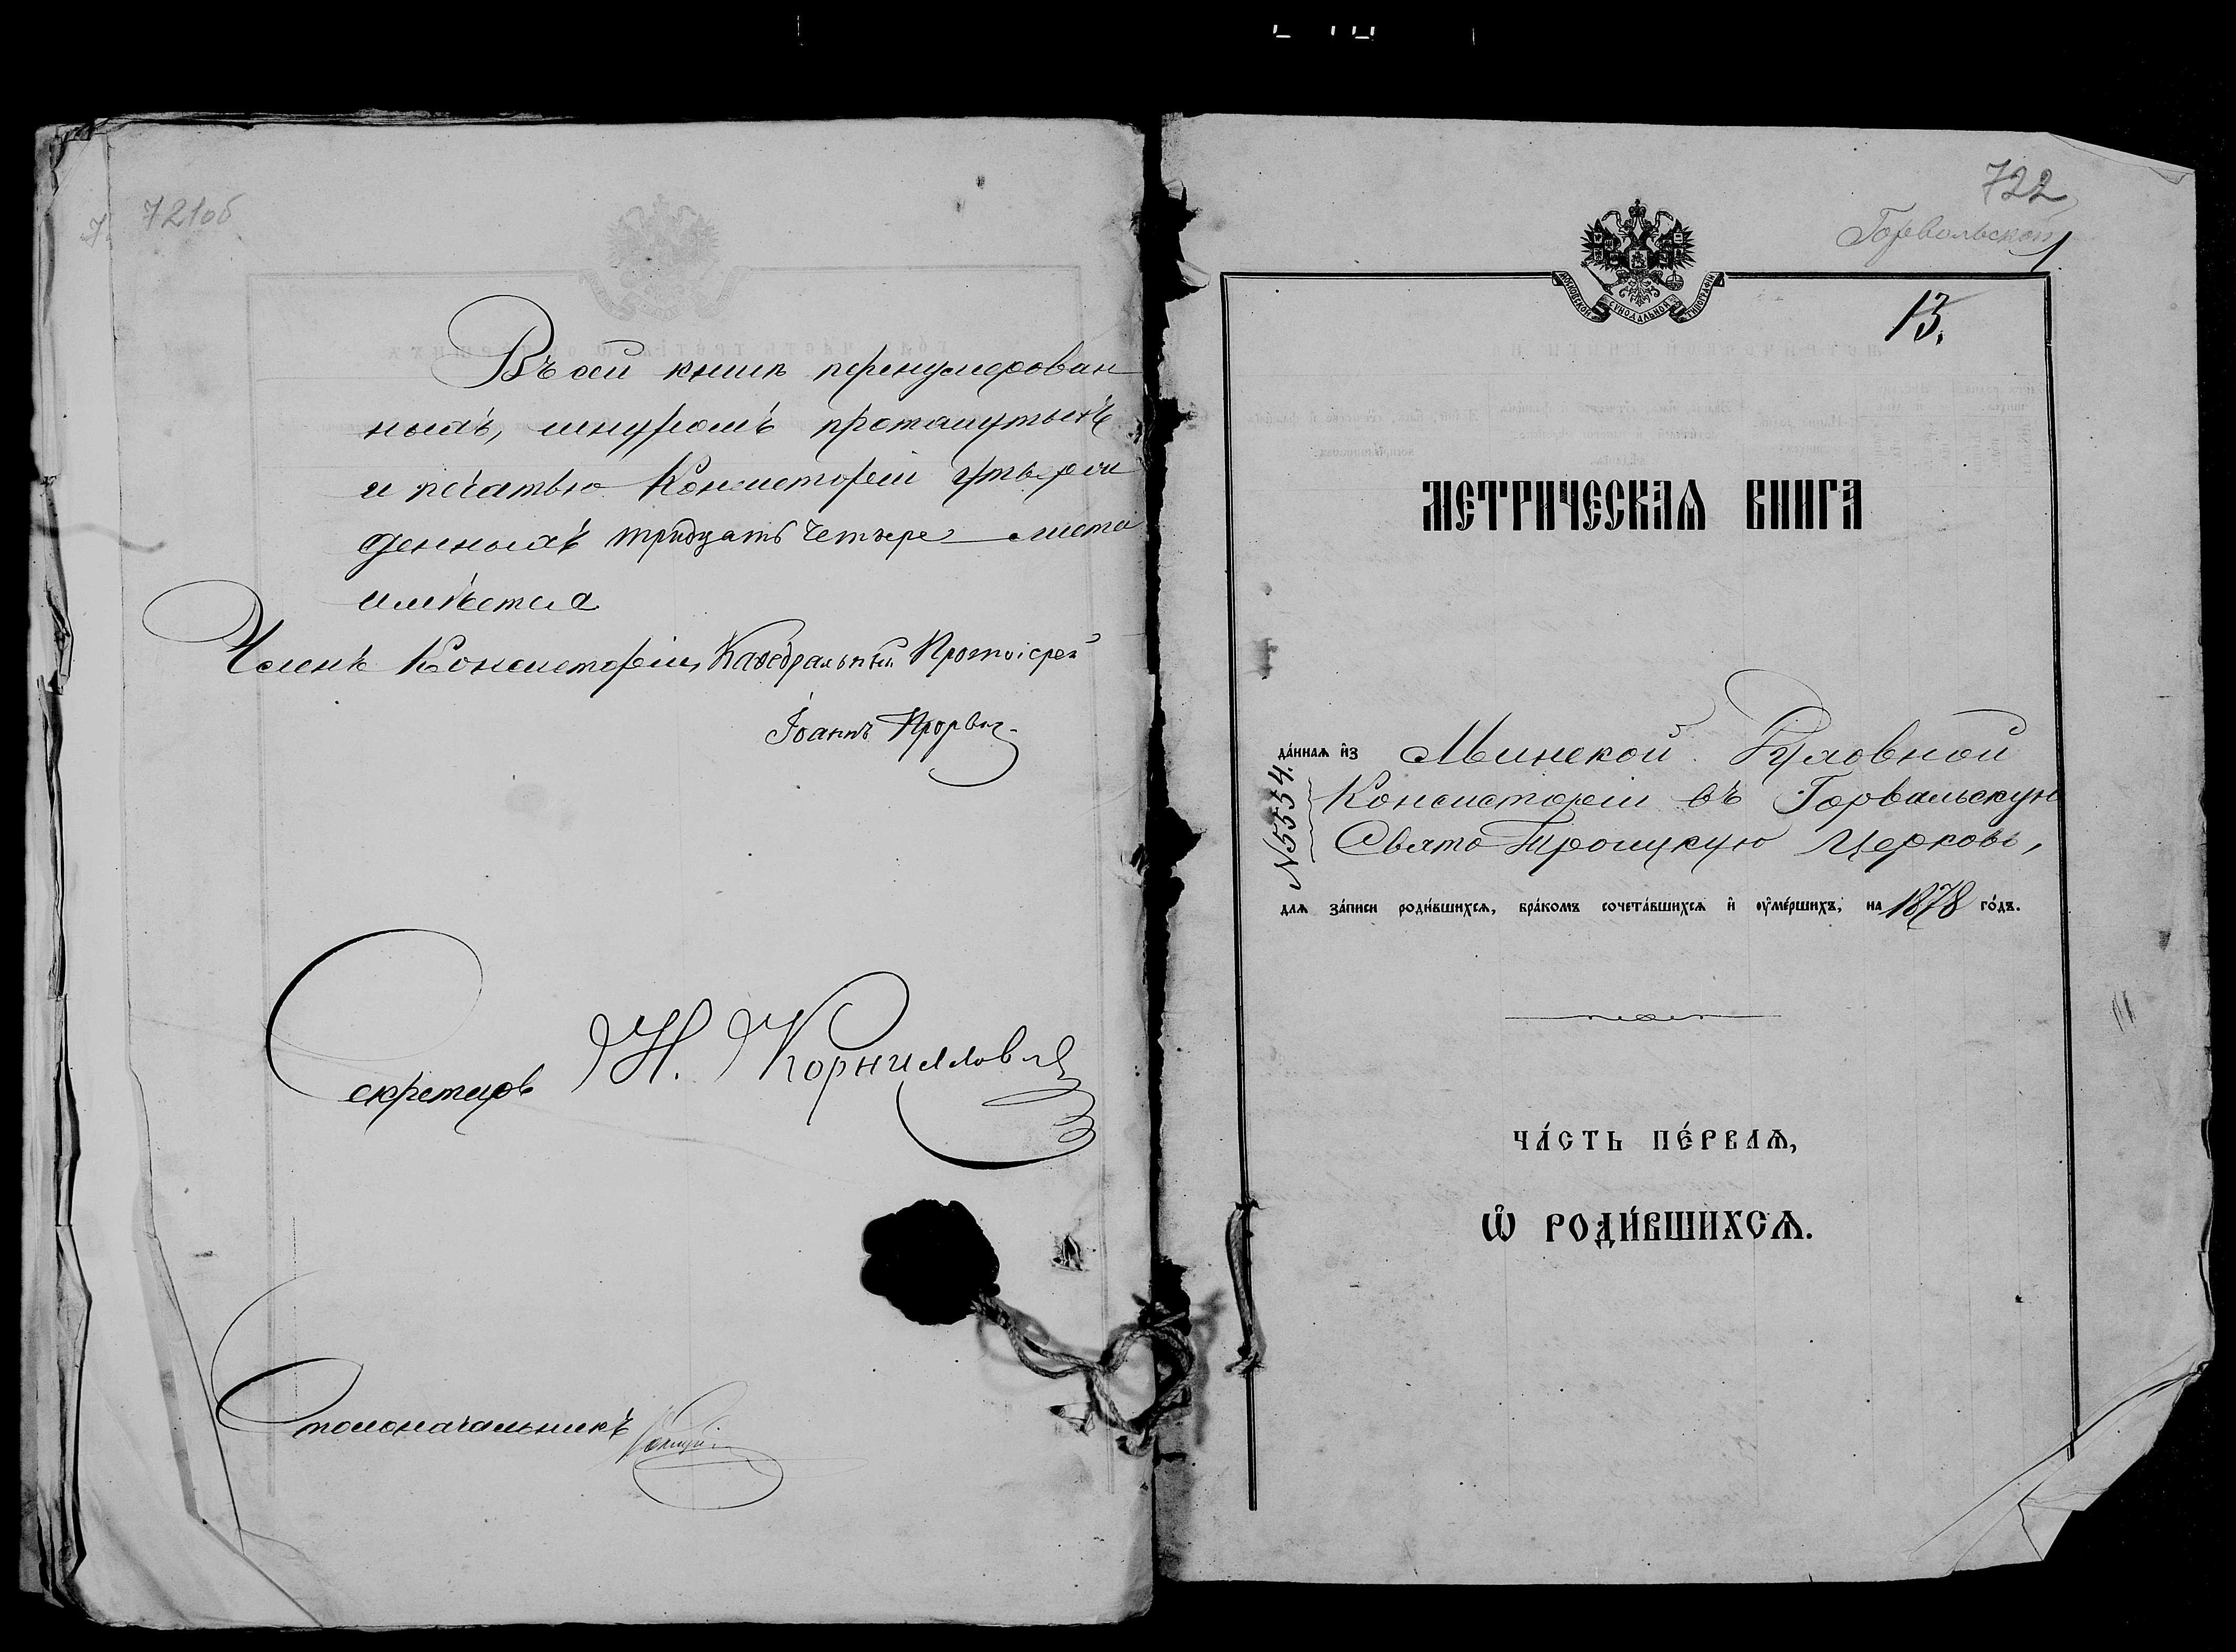 721об
Въ сей книгѣ перенумерован
ныхъ, шнуромъ протянутыхъ
и печатью Консисторіи утверж
денныхъ тридцать четыре листа
имѣется
Членъ Консисторіи, Каѳедральный Протоіерей
Іоаннъ
Секретарь Н. Корниллов
Столоначальникъ
722
Горвольской
1
МОСКОВСКОЙ СѴНОДАЛЬНОЙ ТИПОГРАФІИ
13.
МЕТРИЧЕСКАѦ КНИГА
да́ннаѧ и҆з Минской Духовной
Консисторіи въ Горвальскую
Свято Троицкую Церковь,
№5554.
длѧ за́писи роди́вшихсѧ, бра́комъ сочета́вшихсѧ и҆ ᲂу҆ме́ршихъ, на 1878 го́дъ.
ЧА́СТЬ ПЕ́РВАѦ,
Ѽ РОДИ́ВШИХСѦ.